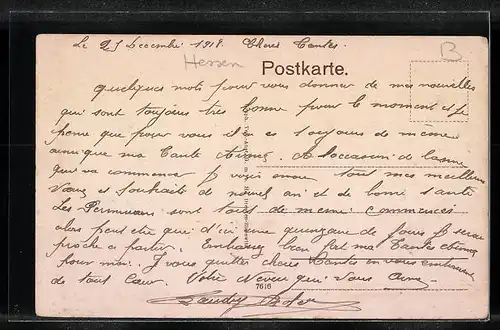 Le 25 Decembre 1918. Cheres Tantes.
Hessen B
Postkarte.
quelques mots pour vous donner de mes nouvelles
qui sont toujours très bonne pour le moment et je
pense que pour vous il en es toujours de même
ainsi que ma tante A l'occasion de
qui va commence je vous envoie tout mes meilleurs
Voeux et souhaits de nouvel an et de bonne santé
Les Permissions sont tout de meme commences
alors peut etre que d'ici une quinzaine de jours je serai
proche a partir. Embrassez bien fort ma Tantes
pour moi. Je vous quitter cheres Tantes en vous embrassant
de tout Coeur. Votre Neveu qui vous aime
7616